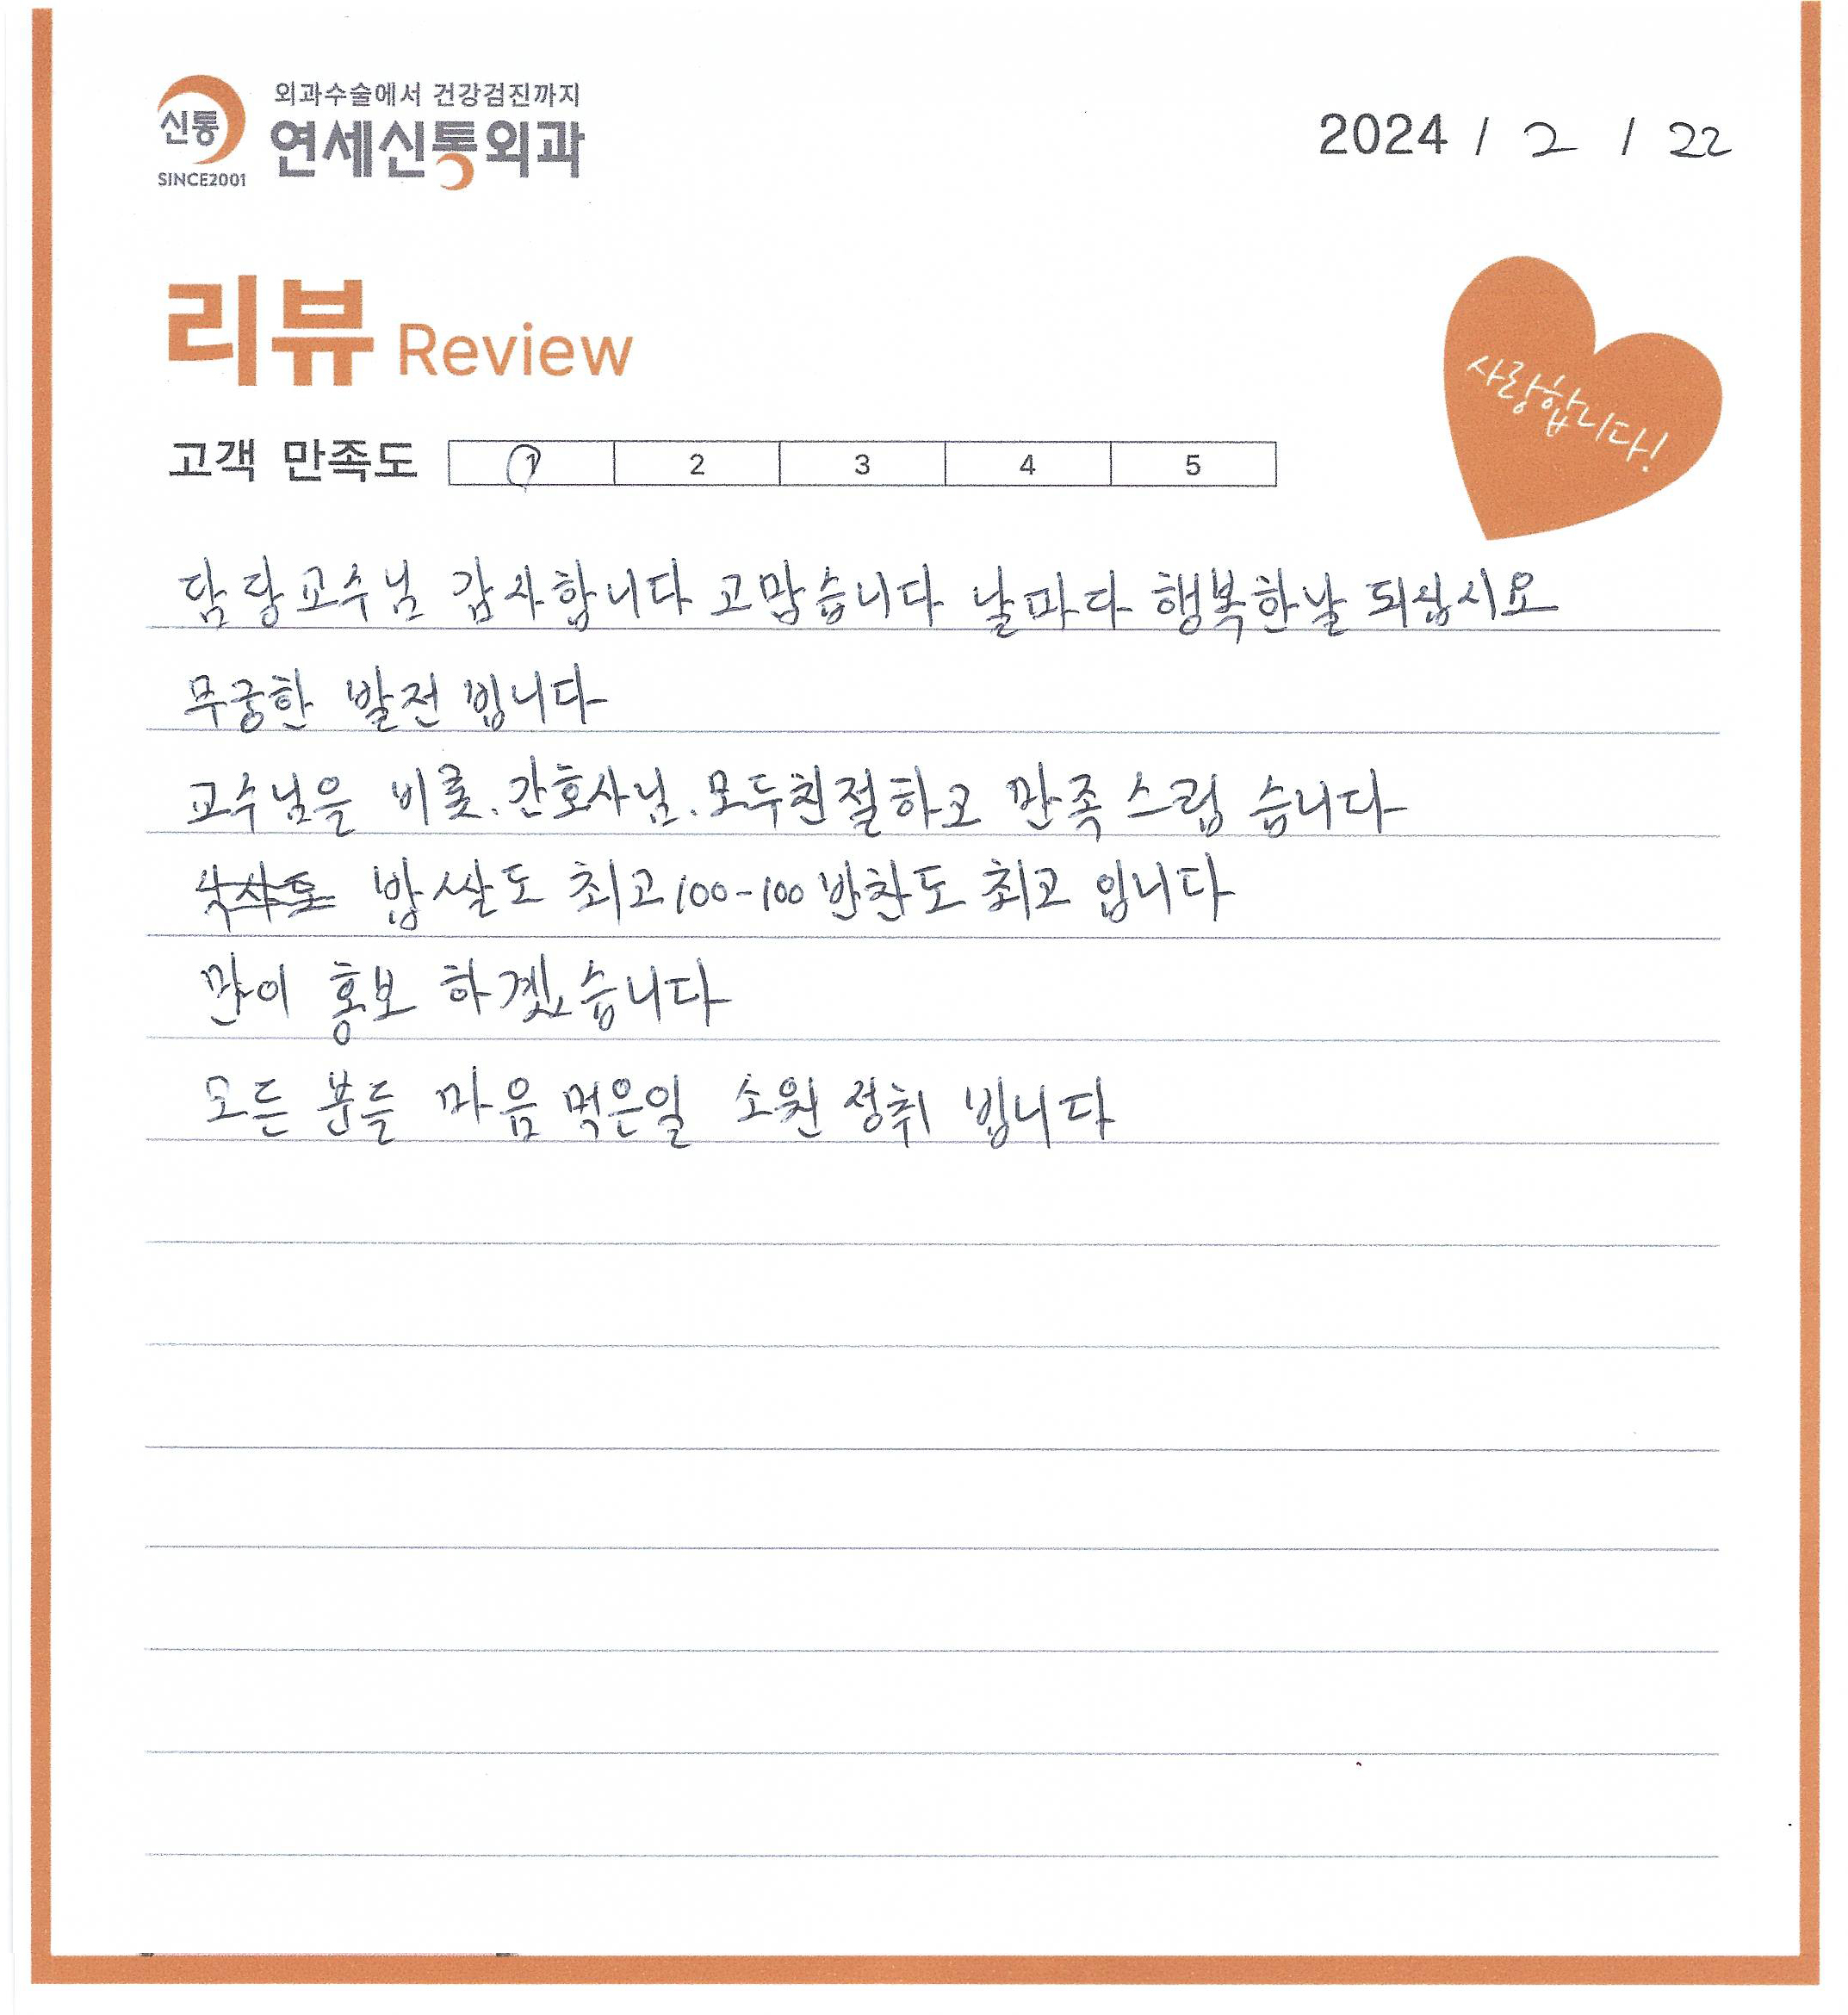 외과수술에서 건강검진까지
신통 연세신통외과
SINCE2001
2024 / 2 / 22
리뷰 Review
사랑합니다!
고객 만족도 1 2 3 4 5
담당교수님 감사합니다 고맙습니다 날마다 행복한날 되십시요
무궁한 발전 빕니다
교수님을 비롯. 간호사님. 모두친절하고 만족스럽습니다
밥쌀도 최고 100-100 반찬도 최고 입니다
많이 홍보 하겠습니다
모든 분들 마음 먹은일 소원 성취 빕니다